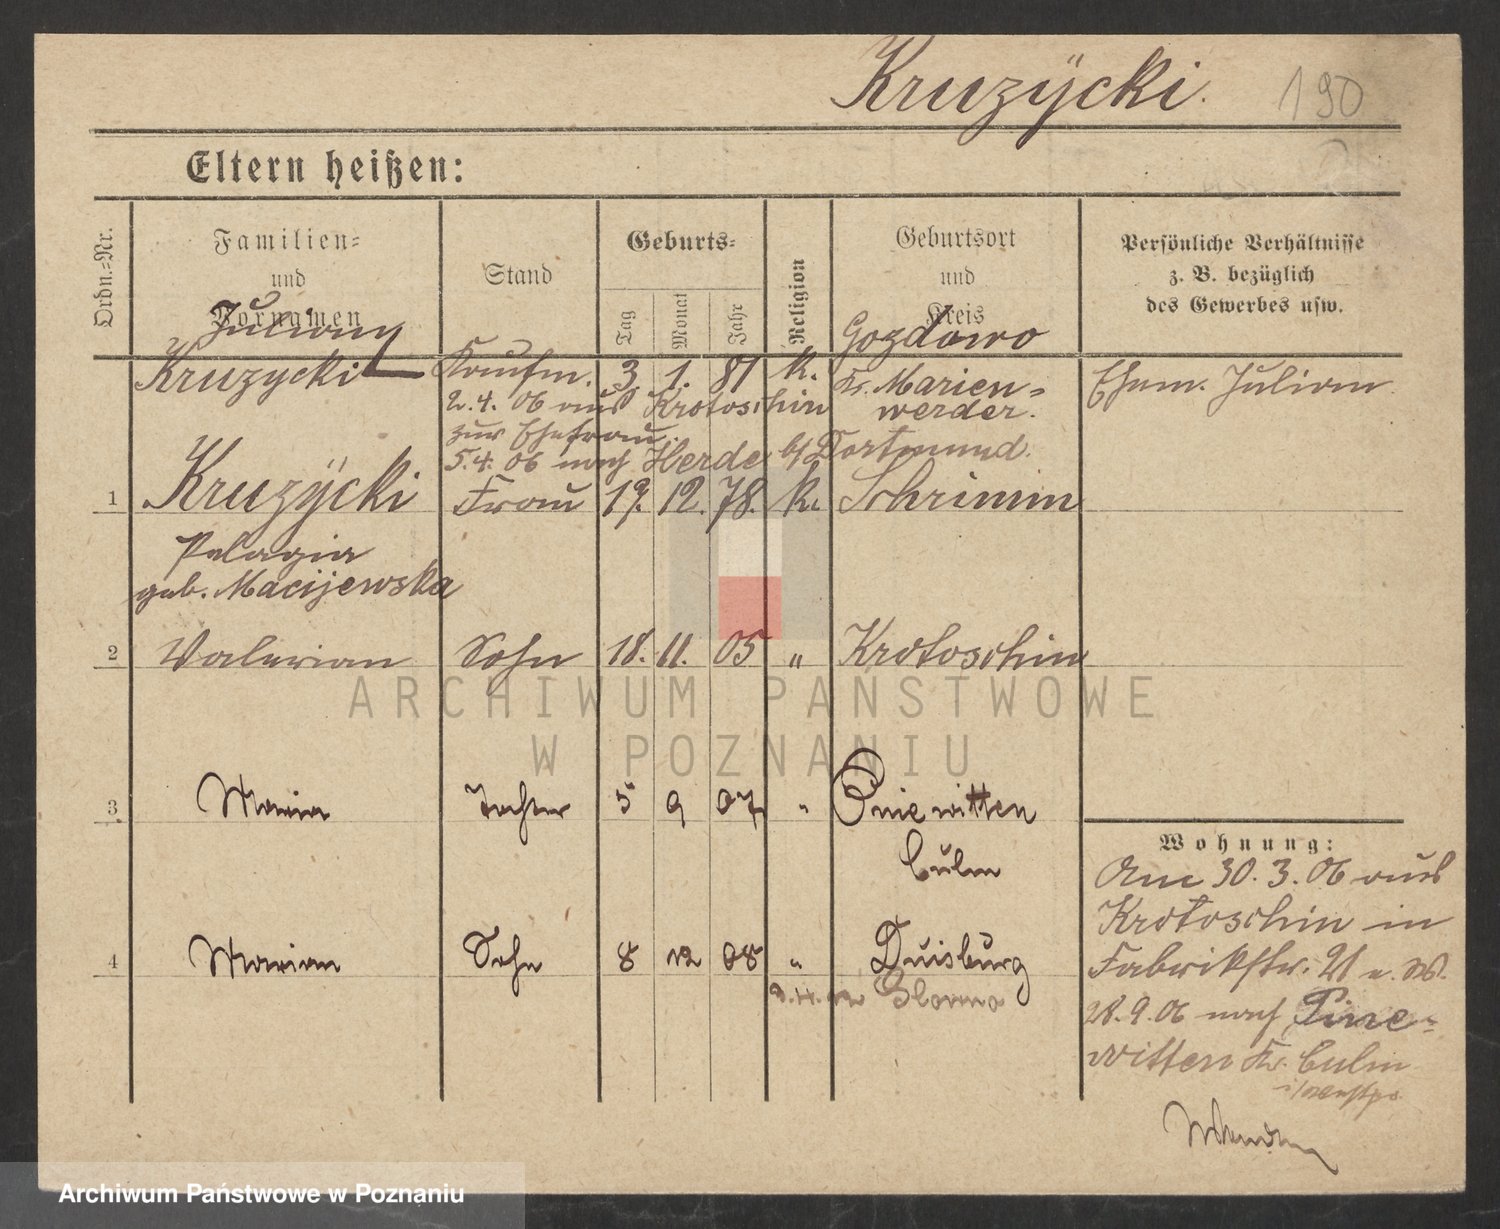 Kruzÿcki. 190
Eltern heißen:
Ordn.-Nr.
Familien-
und
Vornamen
Stand
Geburts-
Tag
Monat
Jahr
Religion
Geburtsort
und
Kreis
Persönliche Verhältnisse
z. B. bezüglich
des Gewerbes usw.
Julian
Gozdowo
Kruzycki Kaufm. 3 1. 81 k. Kr. Marien-
werder.
Ehem. Julian
2.4. 06 aus Krotoschin
zur Ehefrau.
5.4. 06 nach Herde b/ Dortmund.
1 Kruzÿcki Frau 19. 12. 78. k. Schrimm
Pelagia
geb. Macijewska
2 Valerian Sohn 18. 11. 05 " Krotoschin
ARCHIWUM PAŃSTWOWE
W POZNANIU
3 Maria Tochter 5 9 07 " Pniewitten
Culm
4 Marian Sohn 8 12 08 " Duisburg
Wohnung:
Am 30. 3. 06 aus
Krotoschin in
Fabrikstr. 21 u. W.
28.9.06 nach Pnie-
witten Kr. Culm
Archiwum Państwowe w Poznaniu